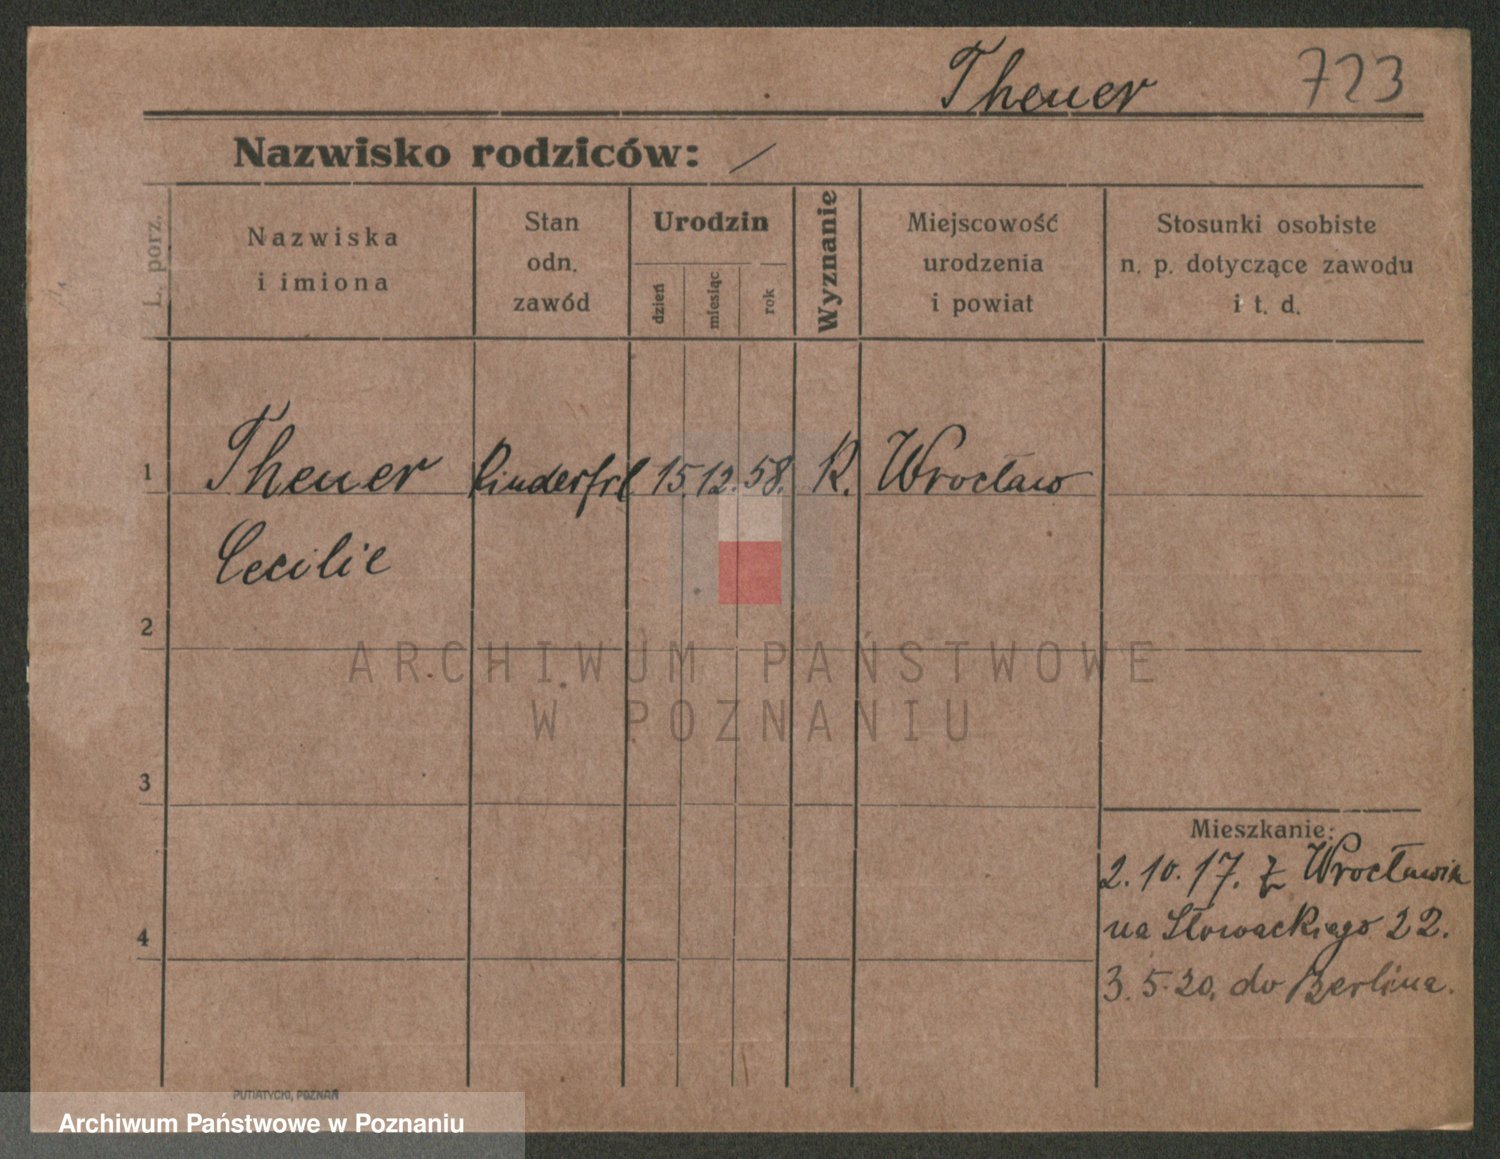 Theuer 723
Nazwisko rodziców: /
L. porz.
Nazwiska
i imiona
Stan
odn.
zawód
Urodzin
dzień
miesiąc
rok
Wyznanie
Miejscowość
urodzenia
i powiat
Stosunki osobiste
n. p. dotyczące zawodu
i t. d.
1 Theuer Kinderfrl. 15. 12. 58. K. Wrocław
Cecilie
2
3
4
Mieszkanie:
2.10.17. z Wrocławia
na Słowackiego 22.
3.5.20. do Berlina.
PUTIATYCKI, POZNAŃ
ARCHIWUM PAŃSTWOWE
W POZNANIU
Archiwum Państwowe w Poznaniu